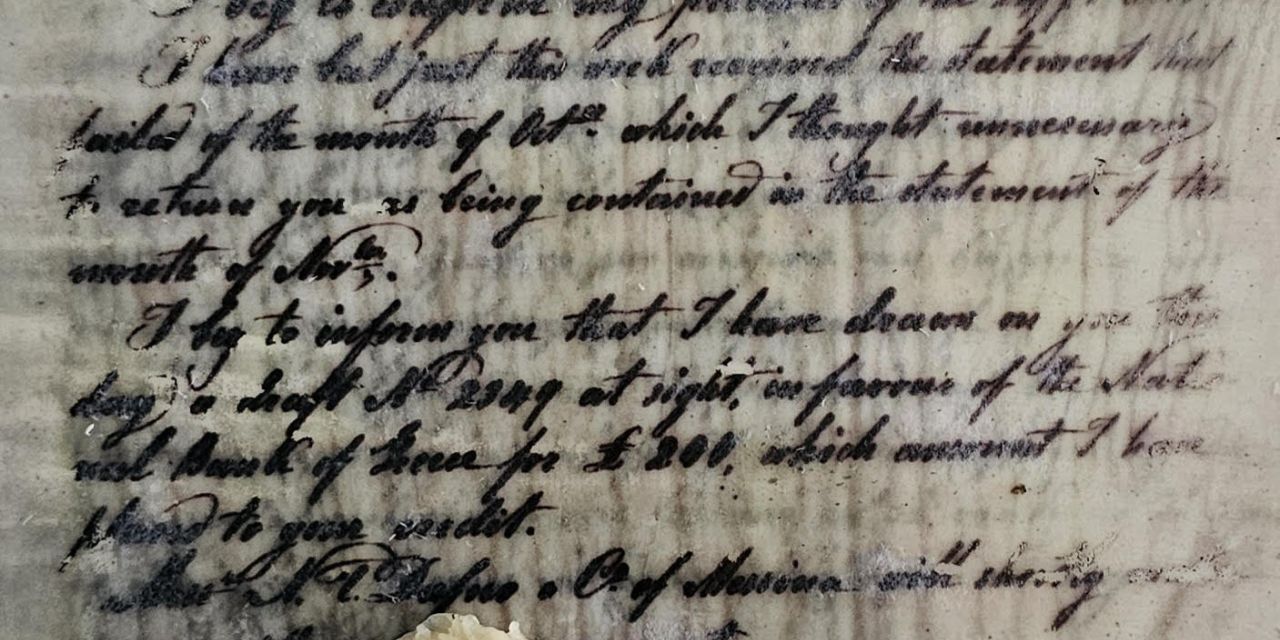 I beg to confirm my
I have but just this week received the statement
of the month of Octer. which I thought unnecessary
to return you as being contained in the statement of the
month of Novber.
I beg to inform you that I have drawn on you this
day a draft No 2349 at sight, in favour of the Natio
nal Bank of Greece for £ 200, which amount I have
placed to your credit.
Messrs N. T. & Co. of Messina will shortly